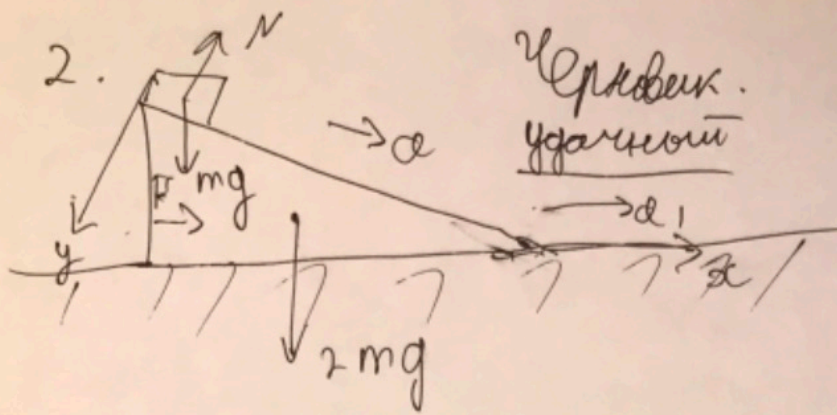 2.
N
Черновик.
удачный
a
F
mg
a₁
y
x
2mg